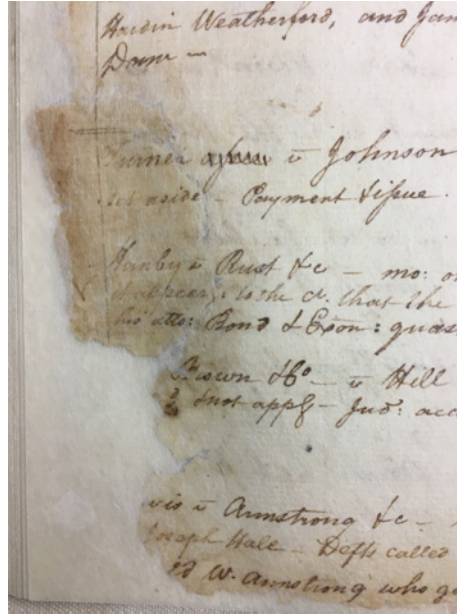 Hardin Weatherford, and Jam
Turner v Johnson
set aside – Payment & issue.
Hanby v Rust &c – mo: o
appear: to the ct. that the
his atto: Bond & Exon: quas
Brown & Co – v Hill
& not appg – Jud: acc
vis v Armstrong &c –
Joseph Hall – Defts called
W. Armstrong who g